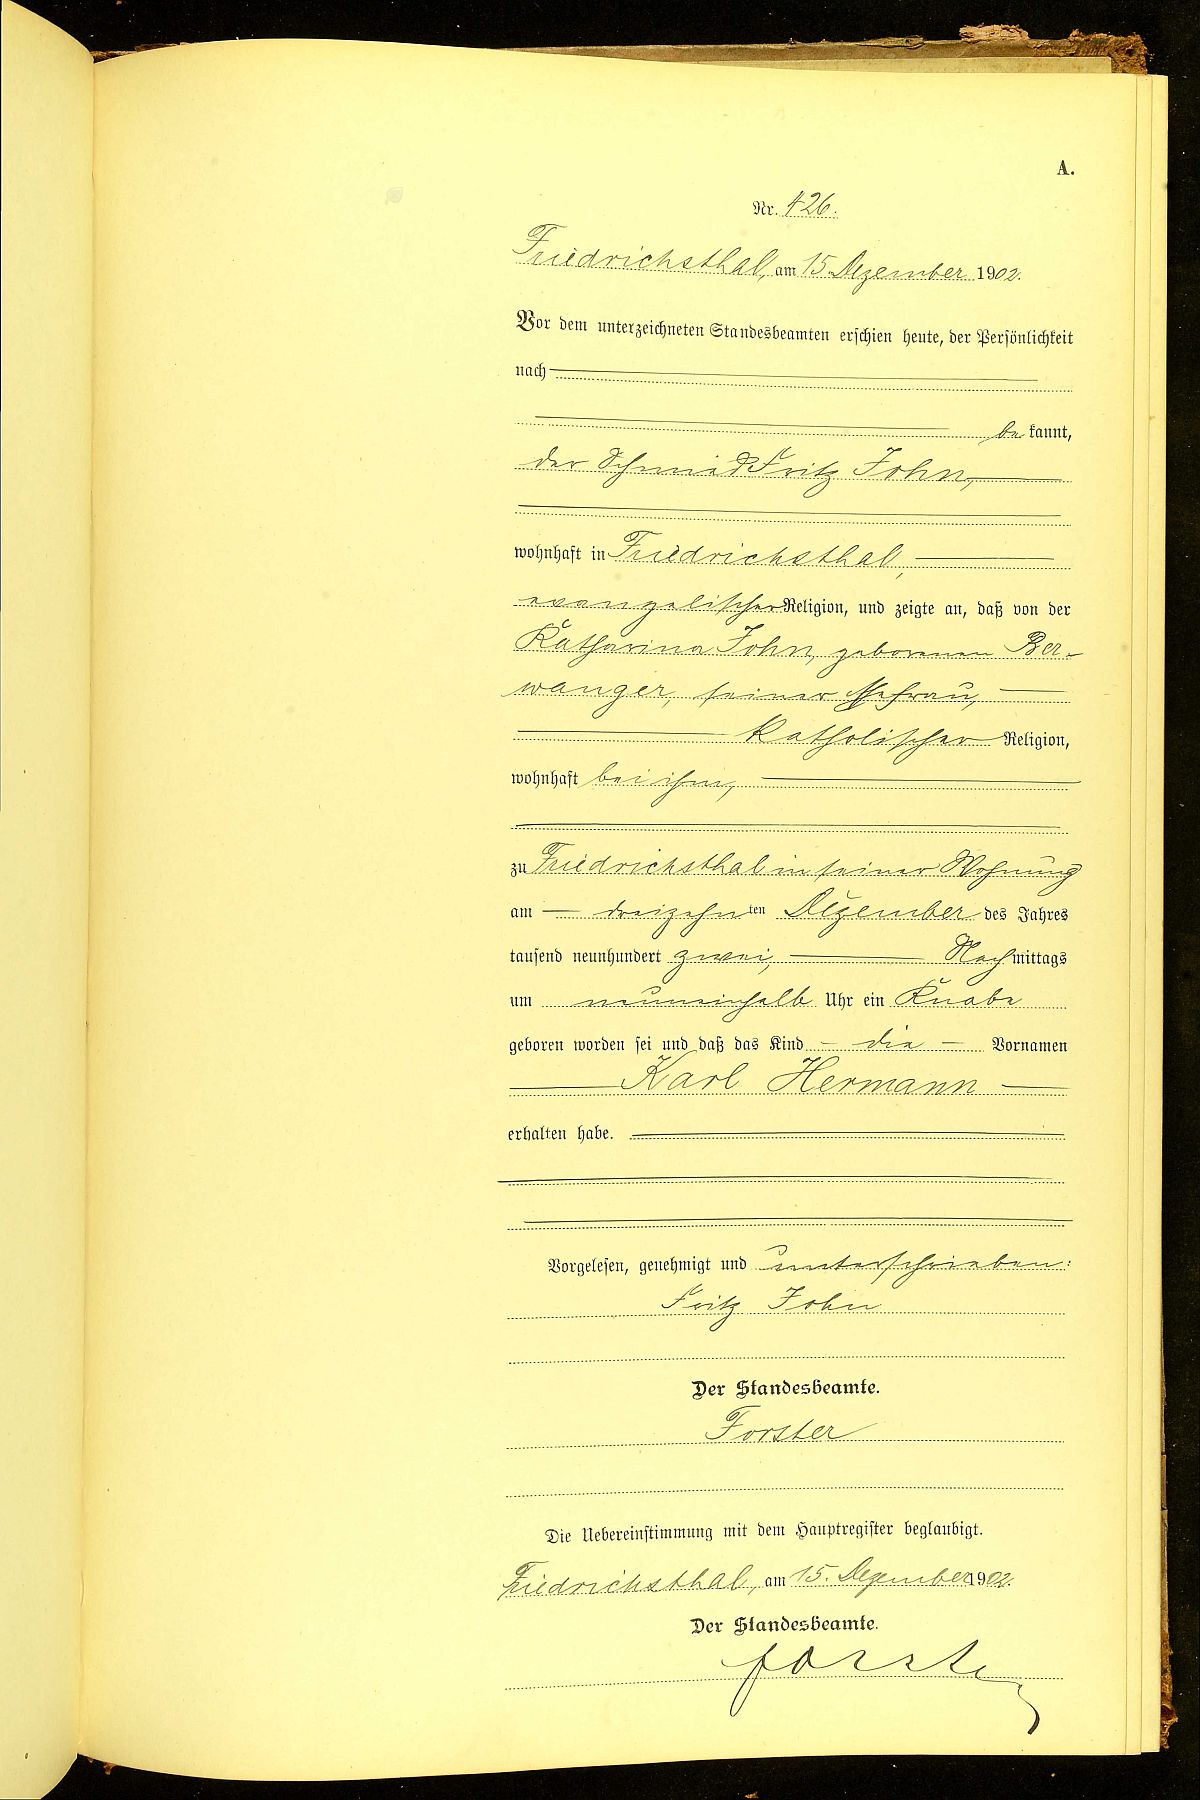 A.
Nr. 426.
Friedrichsthal, am 15 Dezember 1902.
Vor dem unterzeichneten Standesbeamten erschien heute, der Persönlichkeit
nach
be kannt,
der Schmied Fritz John,
wohnhaft in Friedrichsthal,
evangelischer Religion, und zeigte an, daß von der
Katharina John, geborenen Ber-
wanger, seiner Ehefrau,
katholischer Religion,
wohnhaft bei ihm,
zu Friedrichsthal in seiner Wohnung
am dreizehn ten Dezember des Jahres
tausend neunhundert zwei, Nachmittags
um neuneinhalb Uhr ein Knabe
geboren worden sei und daß das Kind - die - Vornamen
Karl Hermann
erhalten habe.
Vorgelesen, genehmigt und unterschrieben:
Fritz John
Der Standesbeamte.
Forster
Die Uebereinstimmung mit dem Hauptregister beglaubigt.
Friedrichsthal, am 15. Dezember 1902.
Der Standesbeamte.
Forster